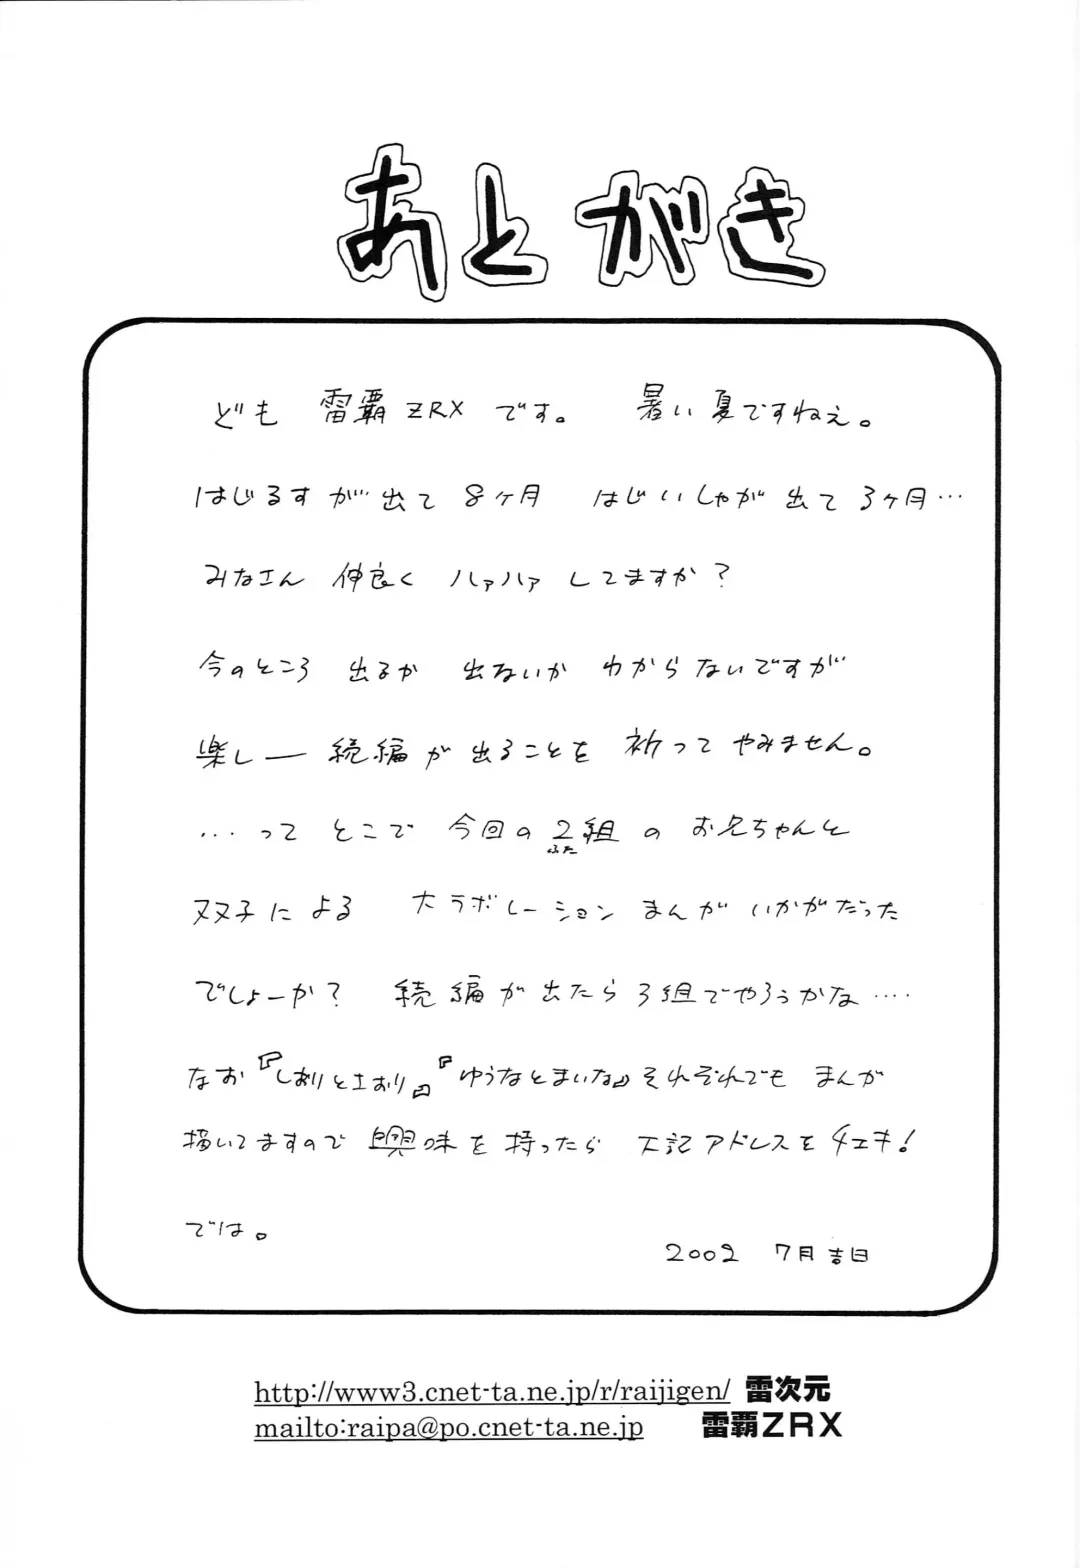 あとがき
ども 雷覇ZRXです。 暑い夏ですねぇ。
はじるすが出て8ヶ月 はじいしゃが出て3ヶ月…
みなさん 仲良く ハァハァしてますか？
今のところ 出るか 出ないか わからないですが
楽しー続編が出ることを祈ってやみません。
…ってとこで 今回の2組のお兄ちゃんと
ふた
双子による 大ラボレーションまんがいかがだった
でしょーか？ 続編が出たら3組でやろうかな‥‥
なお『しおりとさおり』『ゆうなとまいな』それぞれでも まんが
描いてますので 興味を持ったら 下記アドレスをチェキ！
では。
2002 7月吉日
http://www3.cnet-ta.ne.jp/r/raijigen/ 雷次元
mailto:raipa@po.cnet-ta.ne.jp 雷覇ZRX